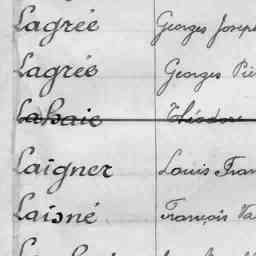 Lagrée Georges Joseph
Lagrée Georges Pie
Lahaie Théodore
Laigner Louis Fran
Laisné François Va